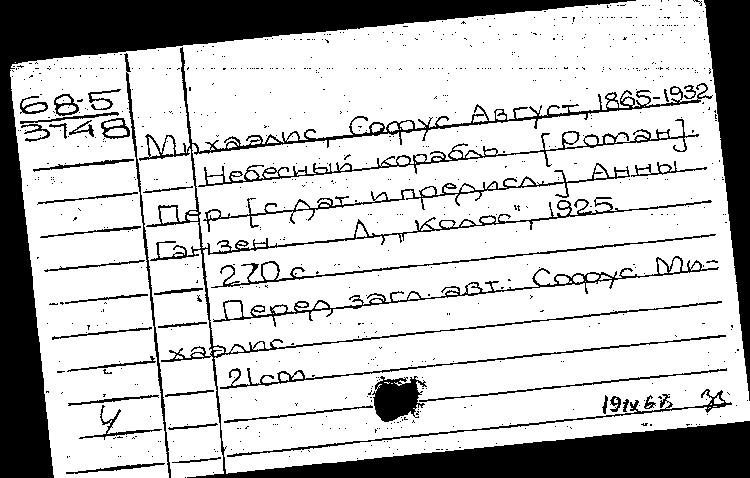 68-5
3748
Михаэлис, Софус Август, 1865-1932
Небесный корабль. [Роман].
Пер. [с дат. и предисл.] Анны
Ганзен. Л., „Колос“, 1925.
270 с.
Перед загл. авт.: Софус Ми-
хаэлис.
21 см.